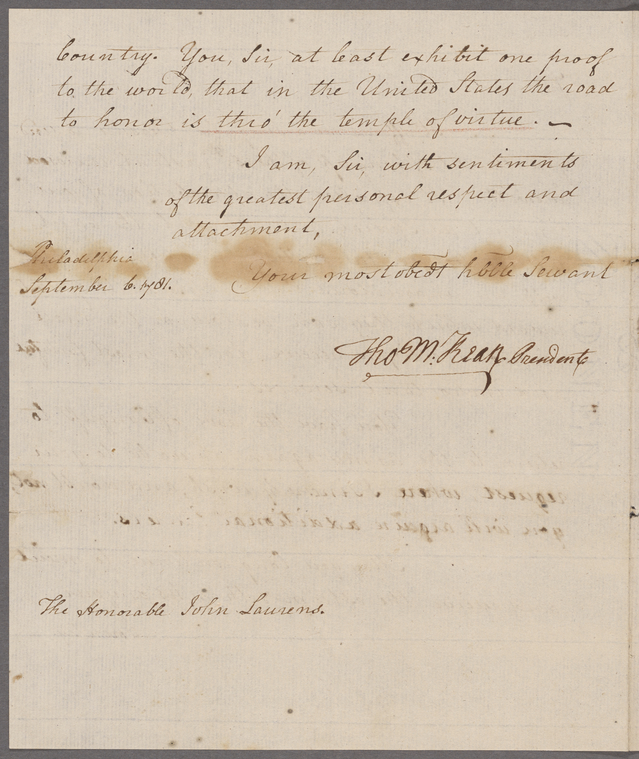 Country. You, Sir, at least exhibit one proof
to the world, that in the United States the road
to honor is thro' the temple of virtue. —
I am, Sir, with sentiments
of the greatest personal respect and
attachment,
Philadelphia
September 6. 1781.
Your most obedt hble Servant
Tho M:Kean President
The Honorable John Laurens.